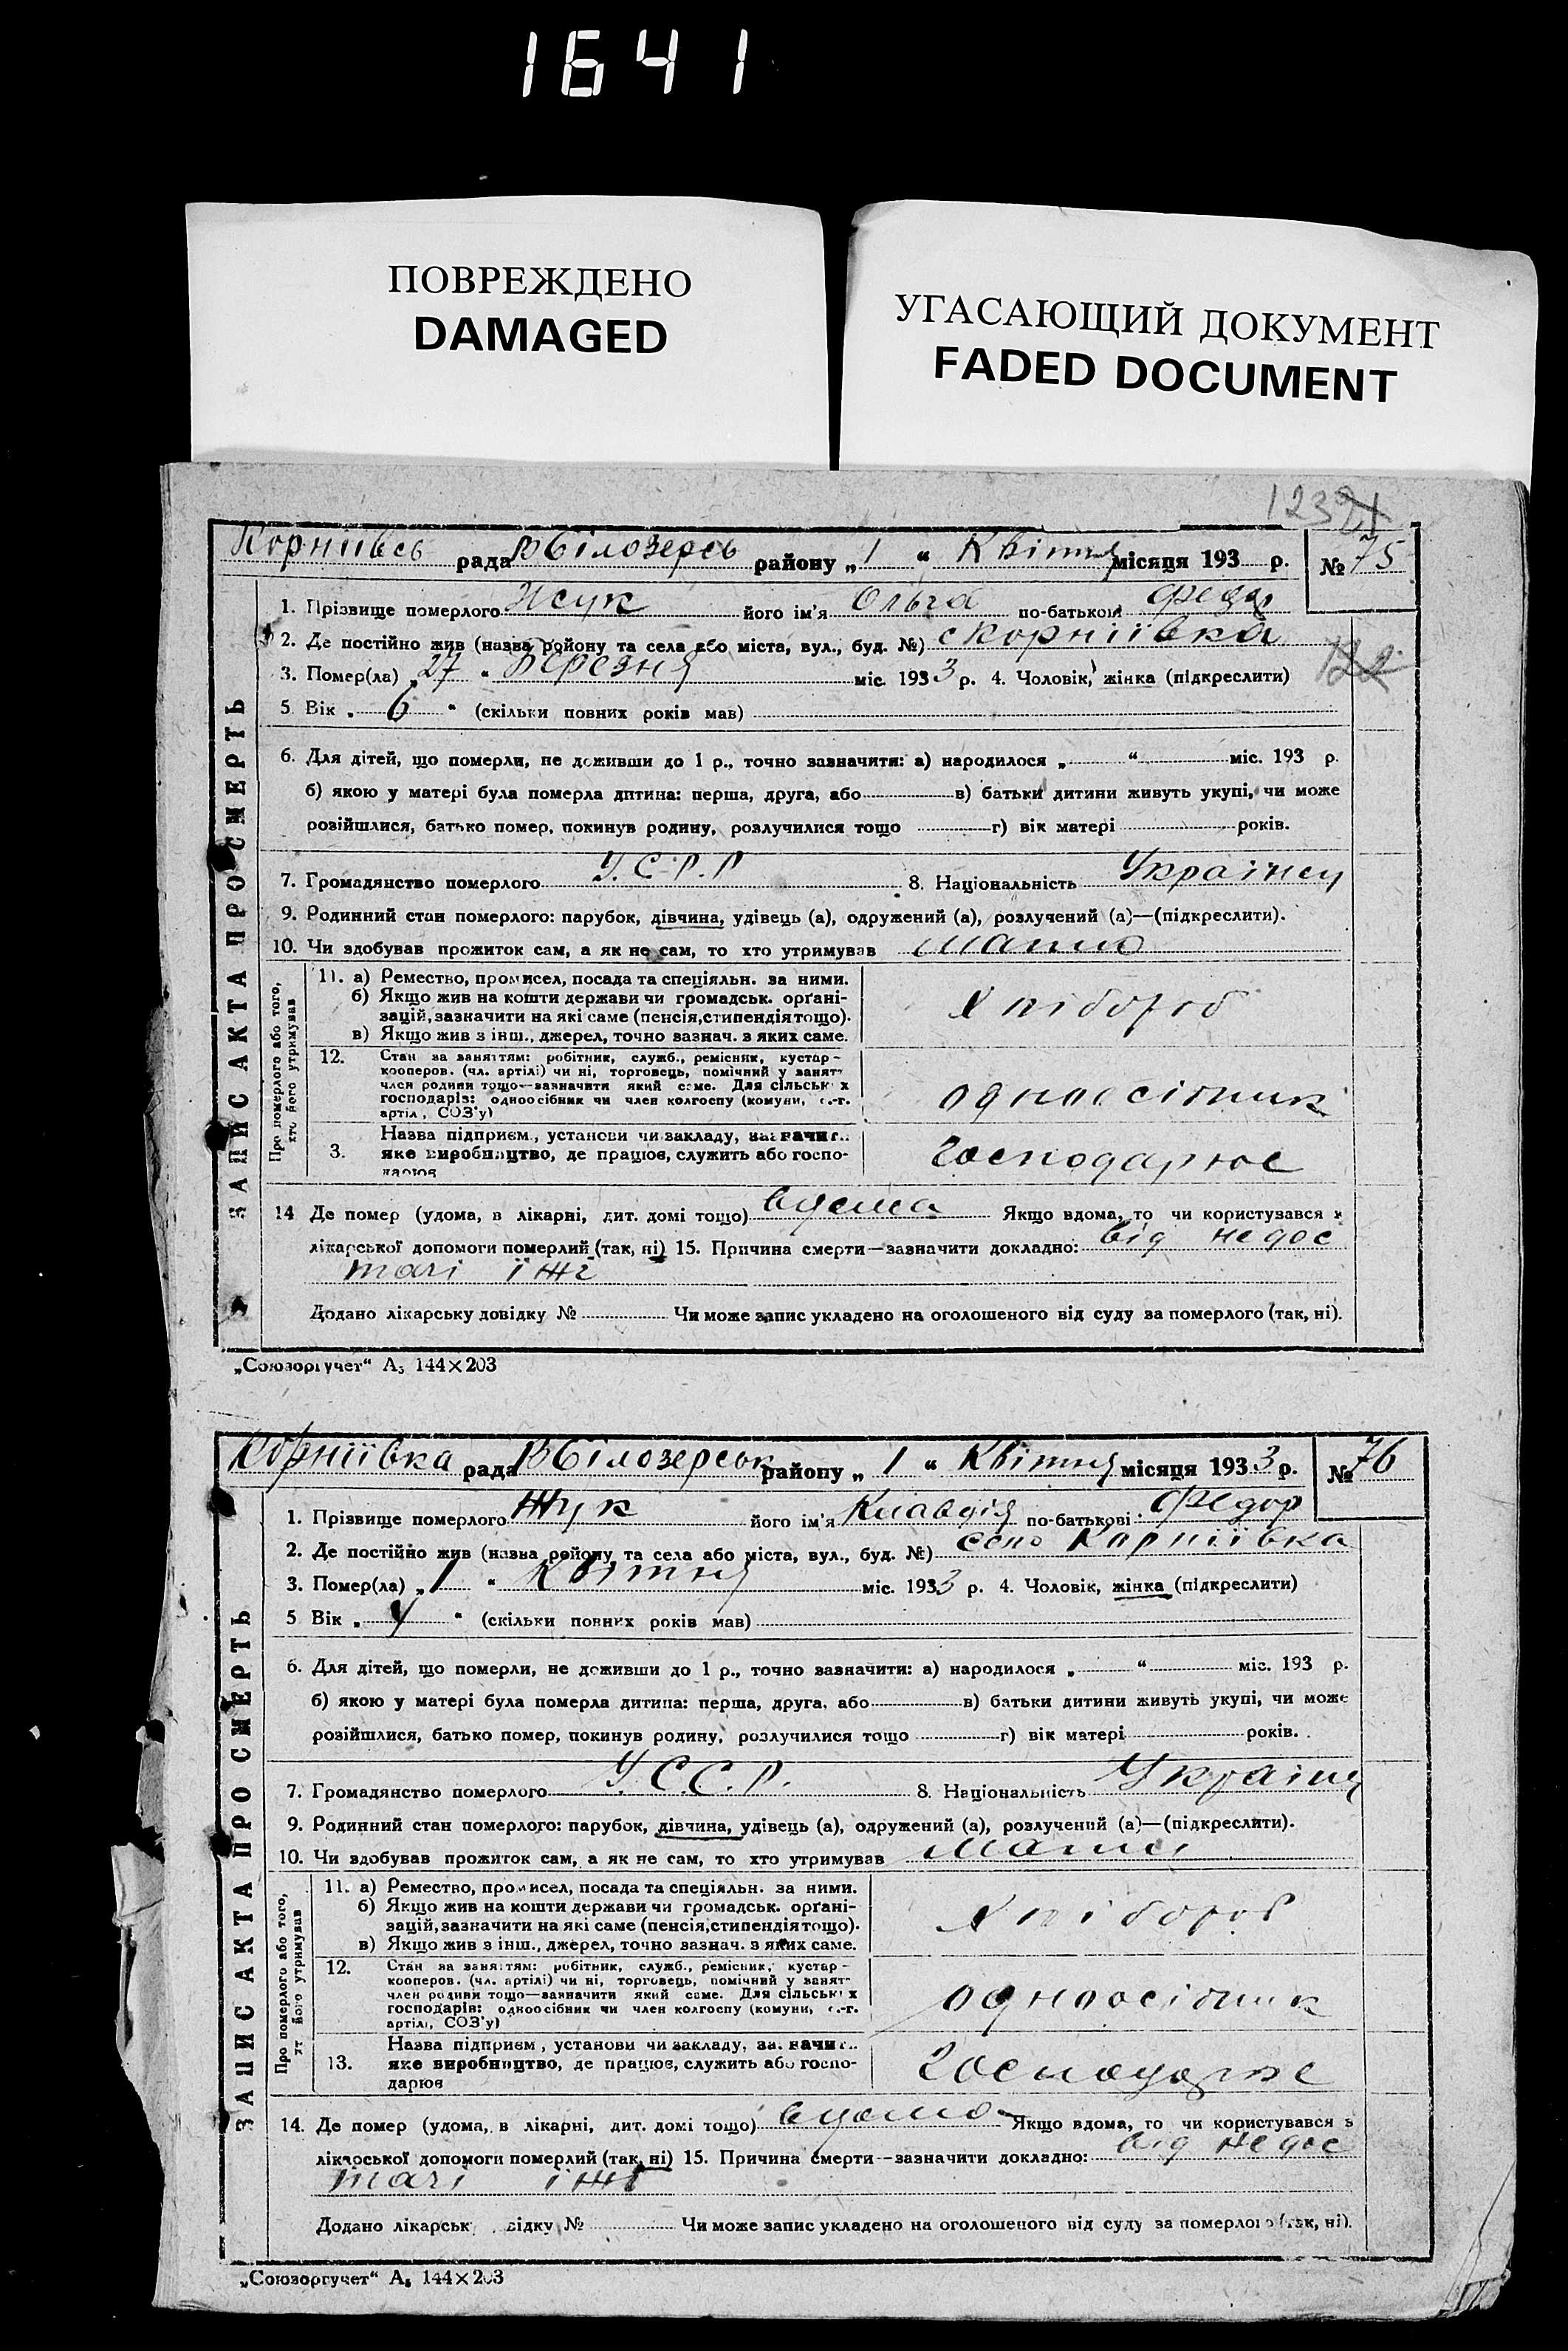 1641
ПОВРЕЖДЕНО
DAMAGED
УГАСАЮЩИЙ ДОКУМЕНТ
FADED DOCUMENT
Корниївсь рада В Білозерсь району „1“ Квітня місяця 193 р. № 75
1. Прізвище померлого Жук його ім'я Ольга по-батькові Федор
2. Де постійно жив (назва району та села або міста, вул., буд. №) с Корніївка
3. Помер(ла) „27“ Березня міс. 1933 р. 4. Чоловік, жінка (підкреслити)
122
5. Вік „6“ (скільки повних років мав)
6. Для дітей, що померли, не доживши до 1 р., точно зазначити: а) народилося „ “ міс. 193 р.
б) якою у матері була померла дитина: перша, друга, або в) батьки дитини живуть укупі, чи може
розійшлися, батько помер, покинув родину, розлучилися тощо г) вік матері років.
7. Громадянство померлого У.С.Р.Р 8. Національність Українец
9. Родинний стан померлого: парубок, дівчина, удівець (а), одружений (а), розлучений (а)—(підкреслити).
10. Чи здобував прожиток сам, а як не сам, то хто утримував
11. а) Ремество, промисел, посада та спеціяльн. за ними.
б) Якщо жив на кошти держави чи громадськ. орґані-
зацій, зазначити на які саме (пенсія, стипендія тощо).
в) Якщо жив з інш., джерел, точно зазнач. з яких саме.
Хлібороб
12. Стан за заняттям: робітник, служб., ремісник, кустар-
кооперов. (чл. артілі) чи ні, торговець, помічний у занят-
член родини тощо—зазначити який саме. Для сільськ х
господарів: одноосібник чи член колгоспу (комуни, с.-г.
артіл, СОЗ'у)
одноосібник
3. Назва підприєм., установи чи закладу, зазначит..
яке виробництво, де працює, служить або госпо-
дарює
Господарює
14 Де помер (удома, в лікарні, дит. домі тощо) вдома Якщо вдома, то чи користувався з
лікарської допомоги померлий (так, ні) 15. Причина смерти—зазначити докладно: від недос
тачі їжі
Додано лікарську довідку № Чи може запис укладено на оголошеного від суду за померлого (так, ні).
ЗАПИС АКТА ПРО СМЕРТЬ
Про померлого або того,
хто його утримував
„Союзоргучет“ А₅ 144×203
Корніївка рада В Білозерськ району „1“ Квітня місяця 1933 р. № 76
1. Прізвище померлого Жук його ім'я Клавдія по-батькові Федор
2. Де постійно жив (назва району та села або міста, вул., буд. №) село Корніївка
3. Помер(ла) „1“ Квітня міс. 1933 р. 4. Чоловік, жінка (підкреслити)
5 Вік „4“ (скільки повних років мав)
6. Для дітей, що померли, не доживши до 1 р., точно зазначити: а) народилося „ “ міс. 193 р.
б) якою у матері була померла дитина: перша, друга, або в) батьки дитини живуть укупі, чи може
розійшлися, батько помер, покинув родину, розлучилися тощо г) вік матері років.
7. Громадянство померлого У.С.С.Р. 8. Національність
9. Родинний стан померлого: парубок, дівчина, удівець (а), одружений (а), розлучений (а)—(підкреслити).
10. Чи здобував прожиток сам, а як не сам, то хто утримував
11. а) Ремество, промисел, посада та спеціяльн. за ними.
б) Якщо жив на кошти держави чи громадськ. орґані-
зацій, зазначити на які саме (пенсія, стипендія тощо).
в) Якщо жив з інш., джерел, точно зазнач. з яких саме.
Хлібороб
12. Стан за заняттям: робітник, служб., ремісник, кустар-
кооперов. (чл. артілі) чи ні, торговець, помічний у занят-
член родини тощо—зазначити який саме. Для сільськ х
господарів: одноосібник чи член колгоспу (комуни, с.-г.
артілі, СОЗ'у)
одноосібник
13. Назва підприєм., установи чи закладу, зазначит..
яке виробництво, де працює, служить або госпо-
дарює
Господарює
14. Де помер (удома, в лікарні, дит. домі тощо) вдома Якщо вдома, то чи користувався з
лікарської допомоги померлий (так, ні) 15. Причина смерти—зазначити докладно: від недос
тачі їжі
Додано лікарськ відку № Чи може запис укладено на оголошеного від суду за померлого (так, ні).
ЗАПИС АКТА ПРО СМЕРТЬ
Про померлого або того,
хт його утримував
„Союзоргучет“ А₅ 144×203